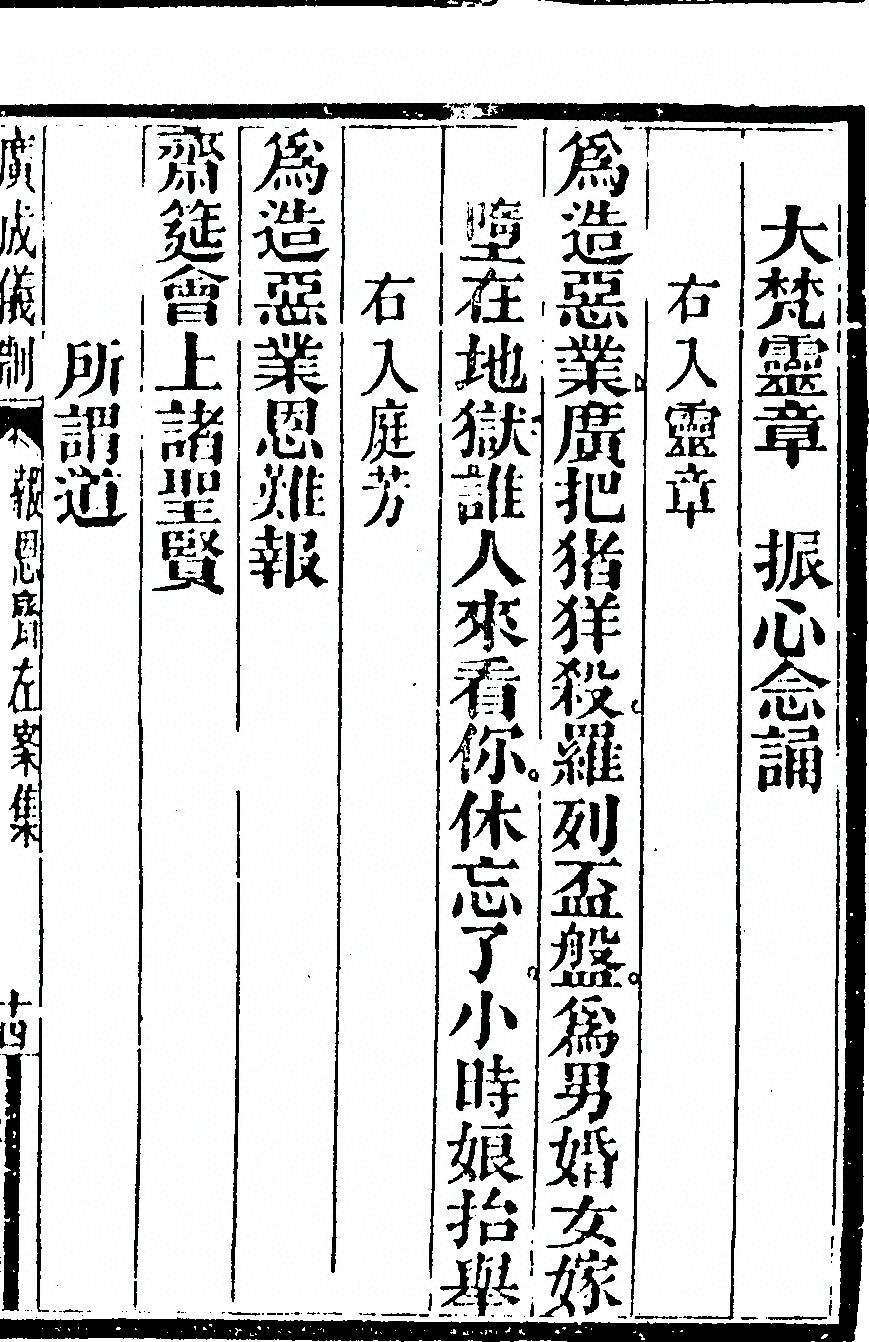 大梵靈章　振心念誦
右入靈章
為造惡業廣把猪羊殺。羅列盃盤。為男婚女嫁
墮在地獄誰人來看你。休忘了。小時娘抬舉
右入庭芳
為造惡業恩難報
齋筵會上諸聖賢
所謂道
廣成儀制　報恩齋左案集　十四